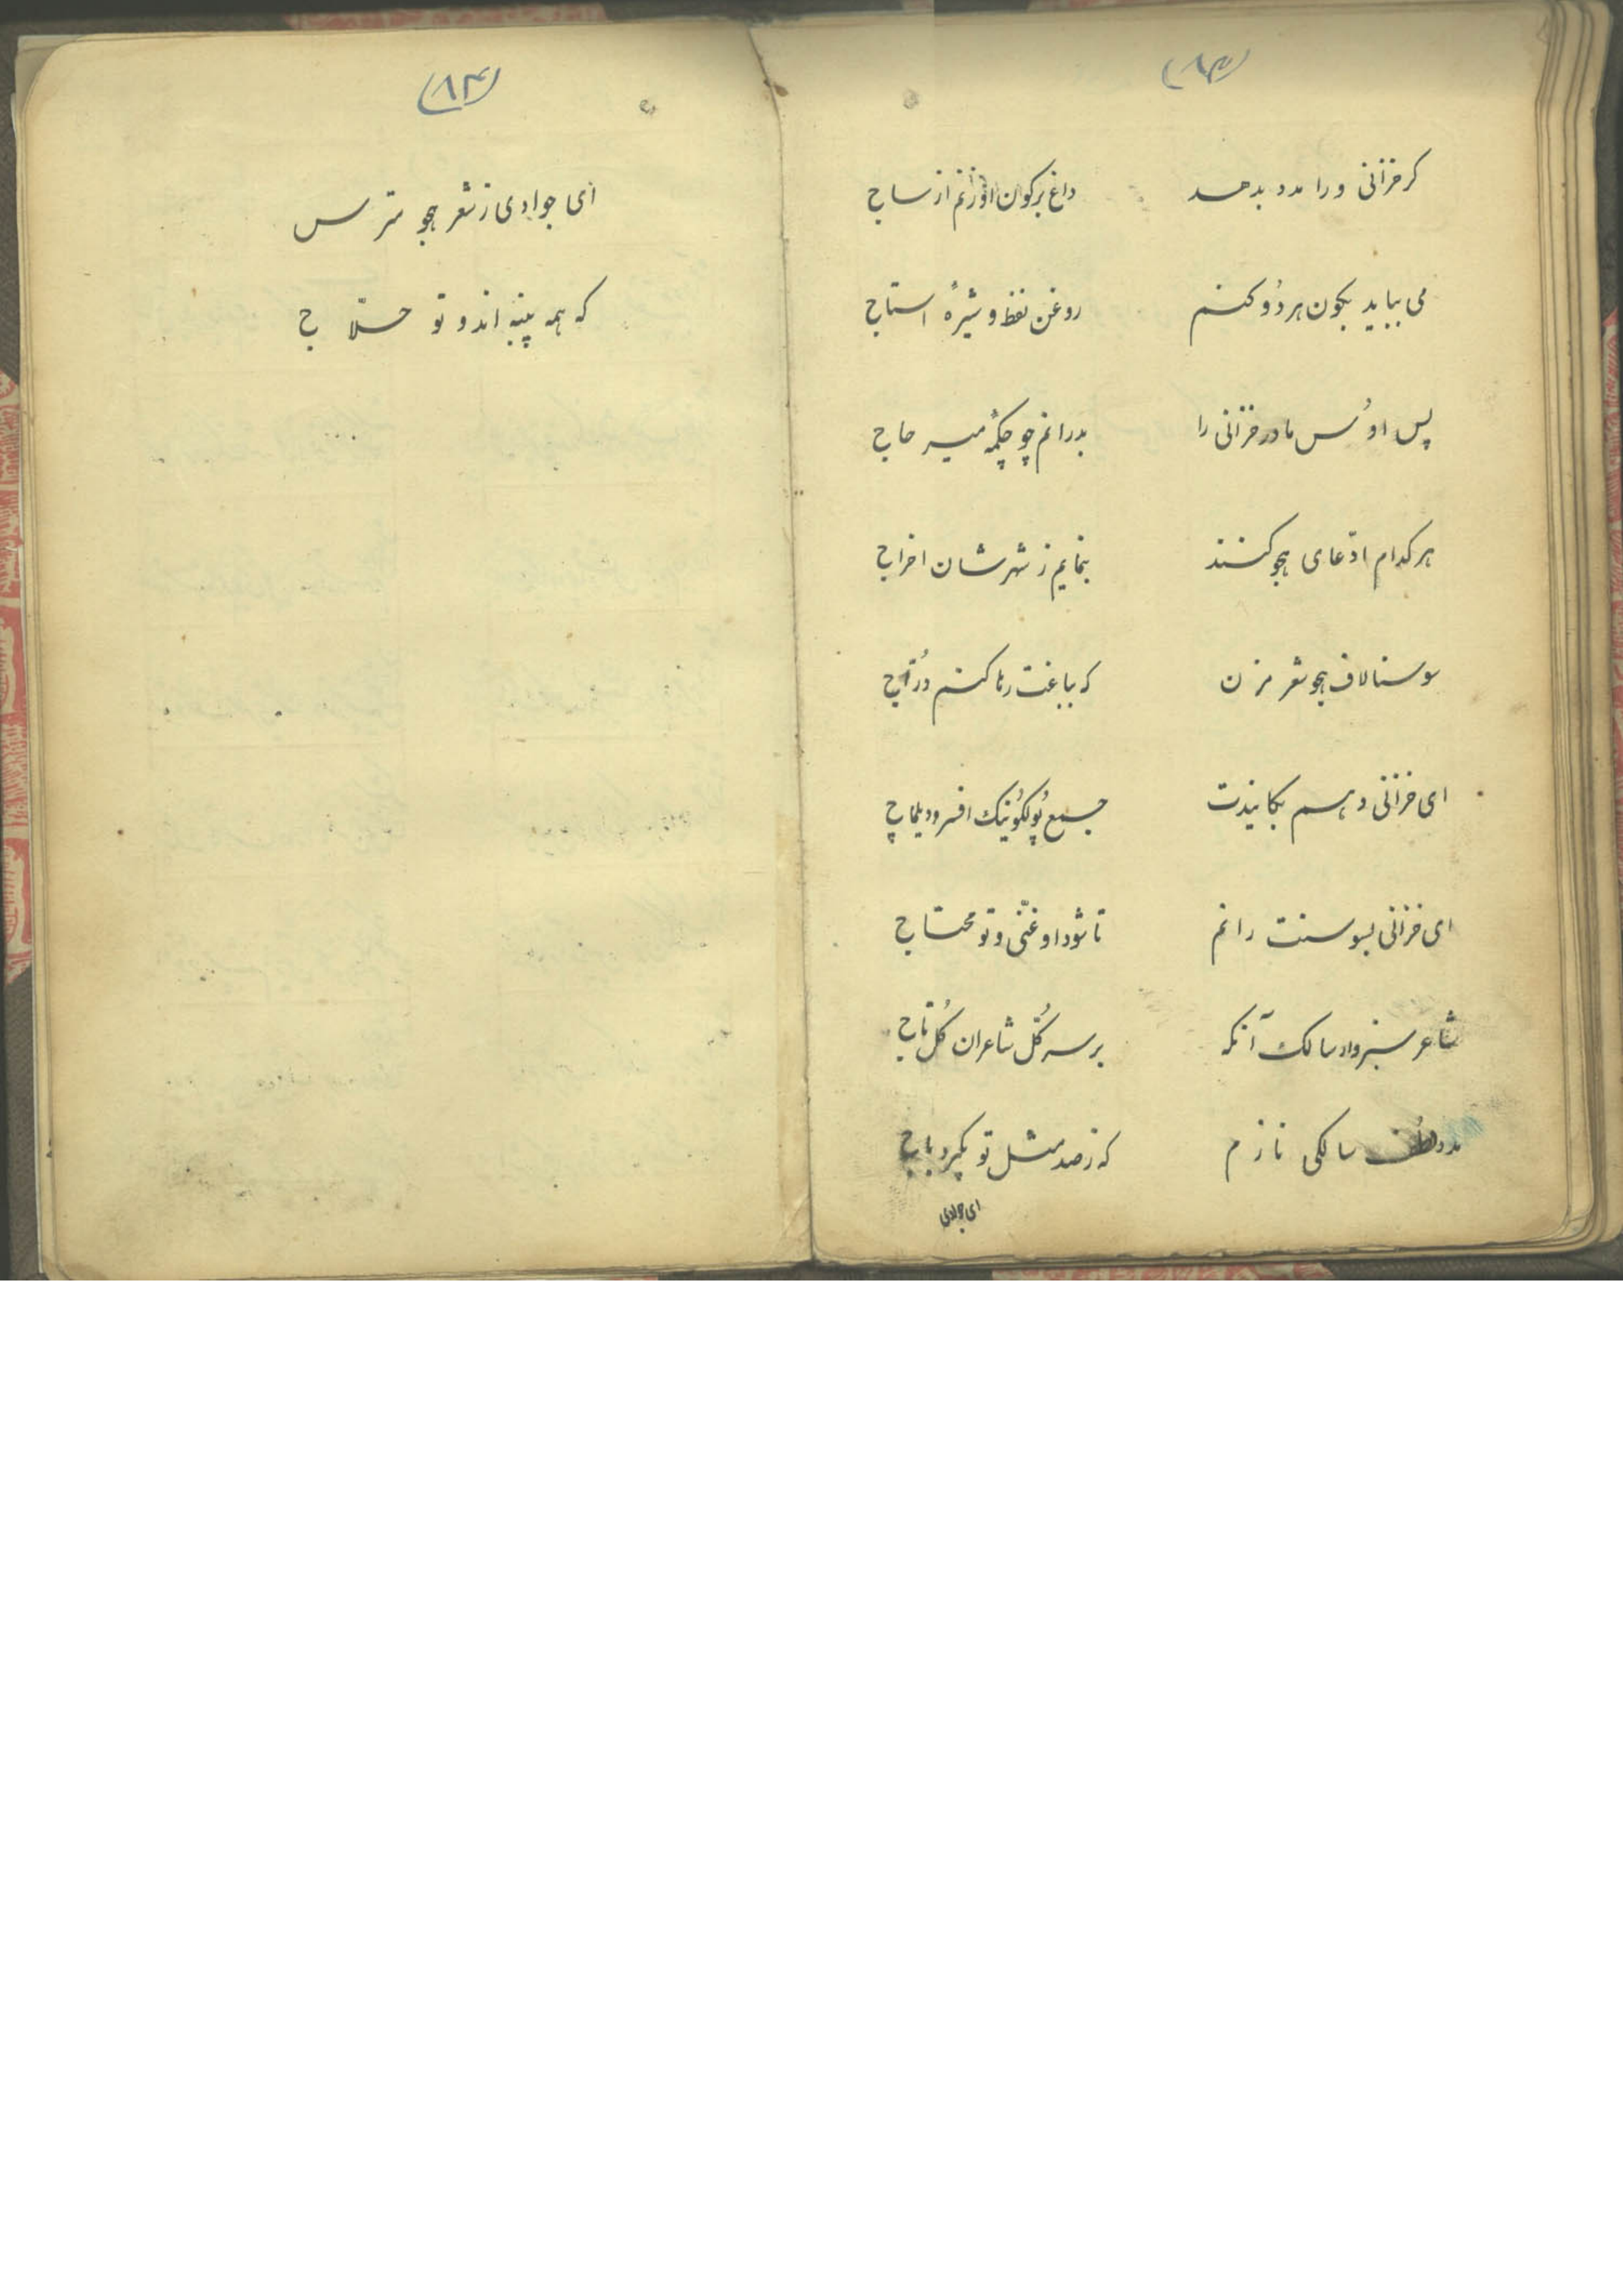 (۸۳)
گر خزانی ورا مدد بدهد داغ بر کون او زنم از ساج
می بباید بکون هر دُو کنم روغن نفط و شیرهٔ استاج
پس او کُس مادر خزانی را بدرانم چو چکمهٔ میر حاج
هر کدام ادّعای هجو کنند بنمایم ز شهرشان اخراج
سوسنا لاف هجو شعر مزن که بباغت رها کنم دُرّاج
ای خزانی دهم بکایندت جمیع پُولکُونیک افسر و دیلماج
ای خزانی بسوسنت رانم تا شود او غنّی و تو محتاج
شاعر سبزوار سالک آنکه بر سر کُلّ شاعران کُل تاج
مدد لطف سالکی نازم که ز صد مثل تو بگیرد باج
ای جوادی
(۸۴)
ای جوادی ز شعر هجو مترس
که همه پنبه اند و تو حلّاج